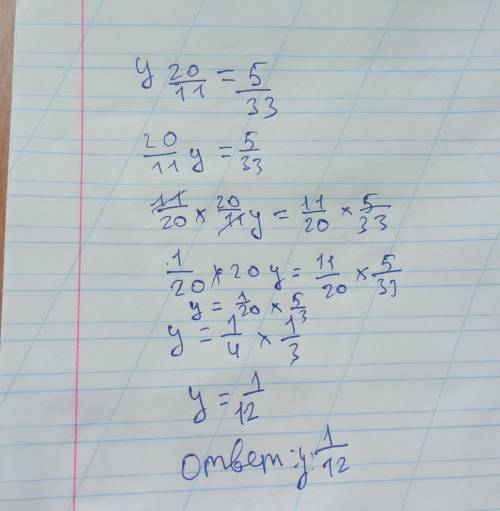 y 20/11 = 5/33
20/11 y = 5/33
11/20 × 20/11 y = 11/20 × 5/33
1/20 × 20 y = 11/20 × 5/33
y = 1/20 × 5/3
y = 1/4 × 1/3
y = 1/12
Ответ: y: 1/12